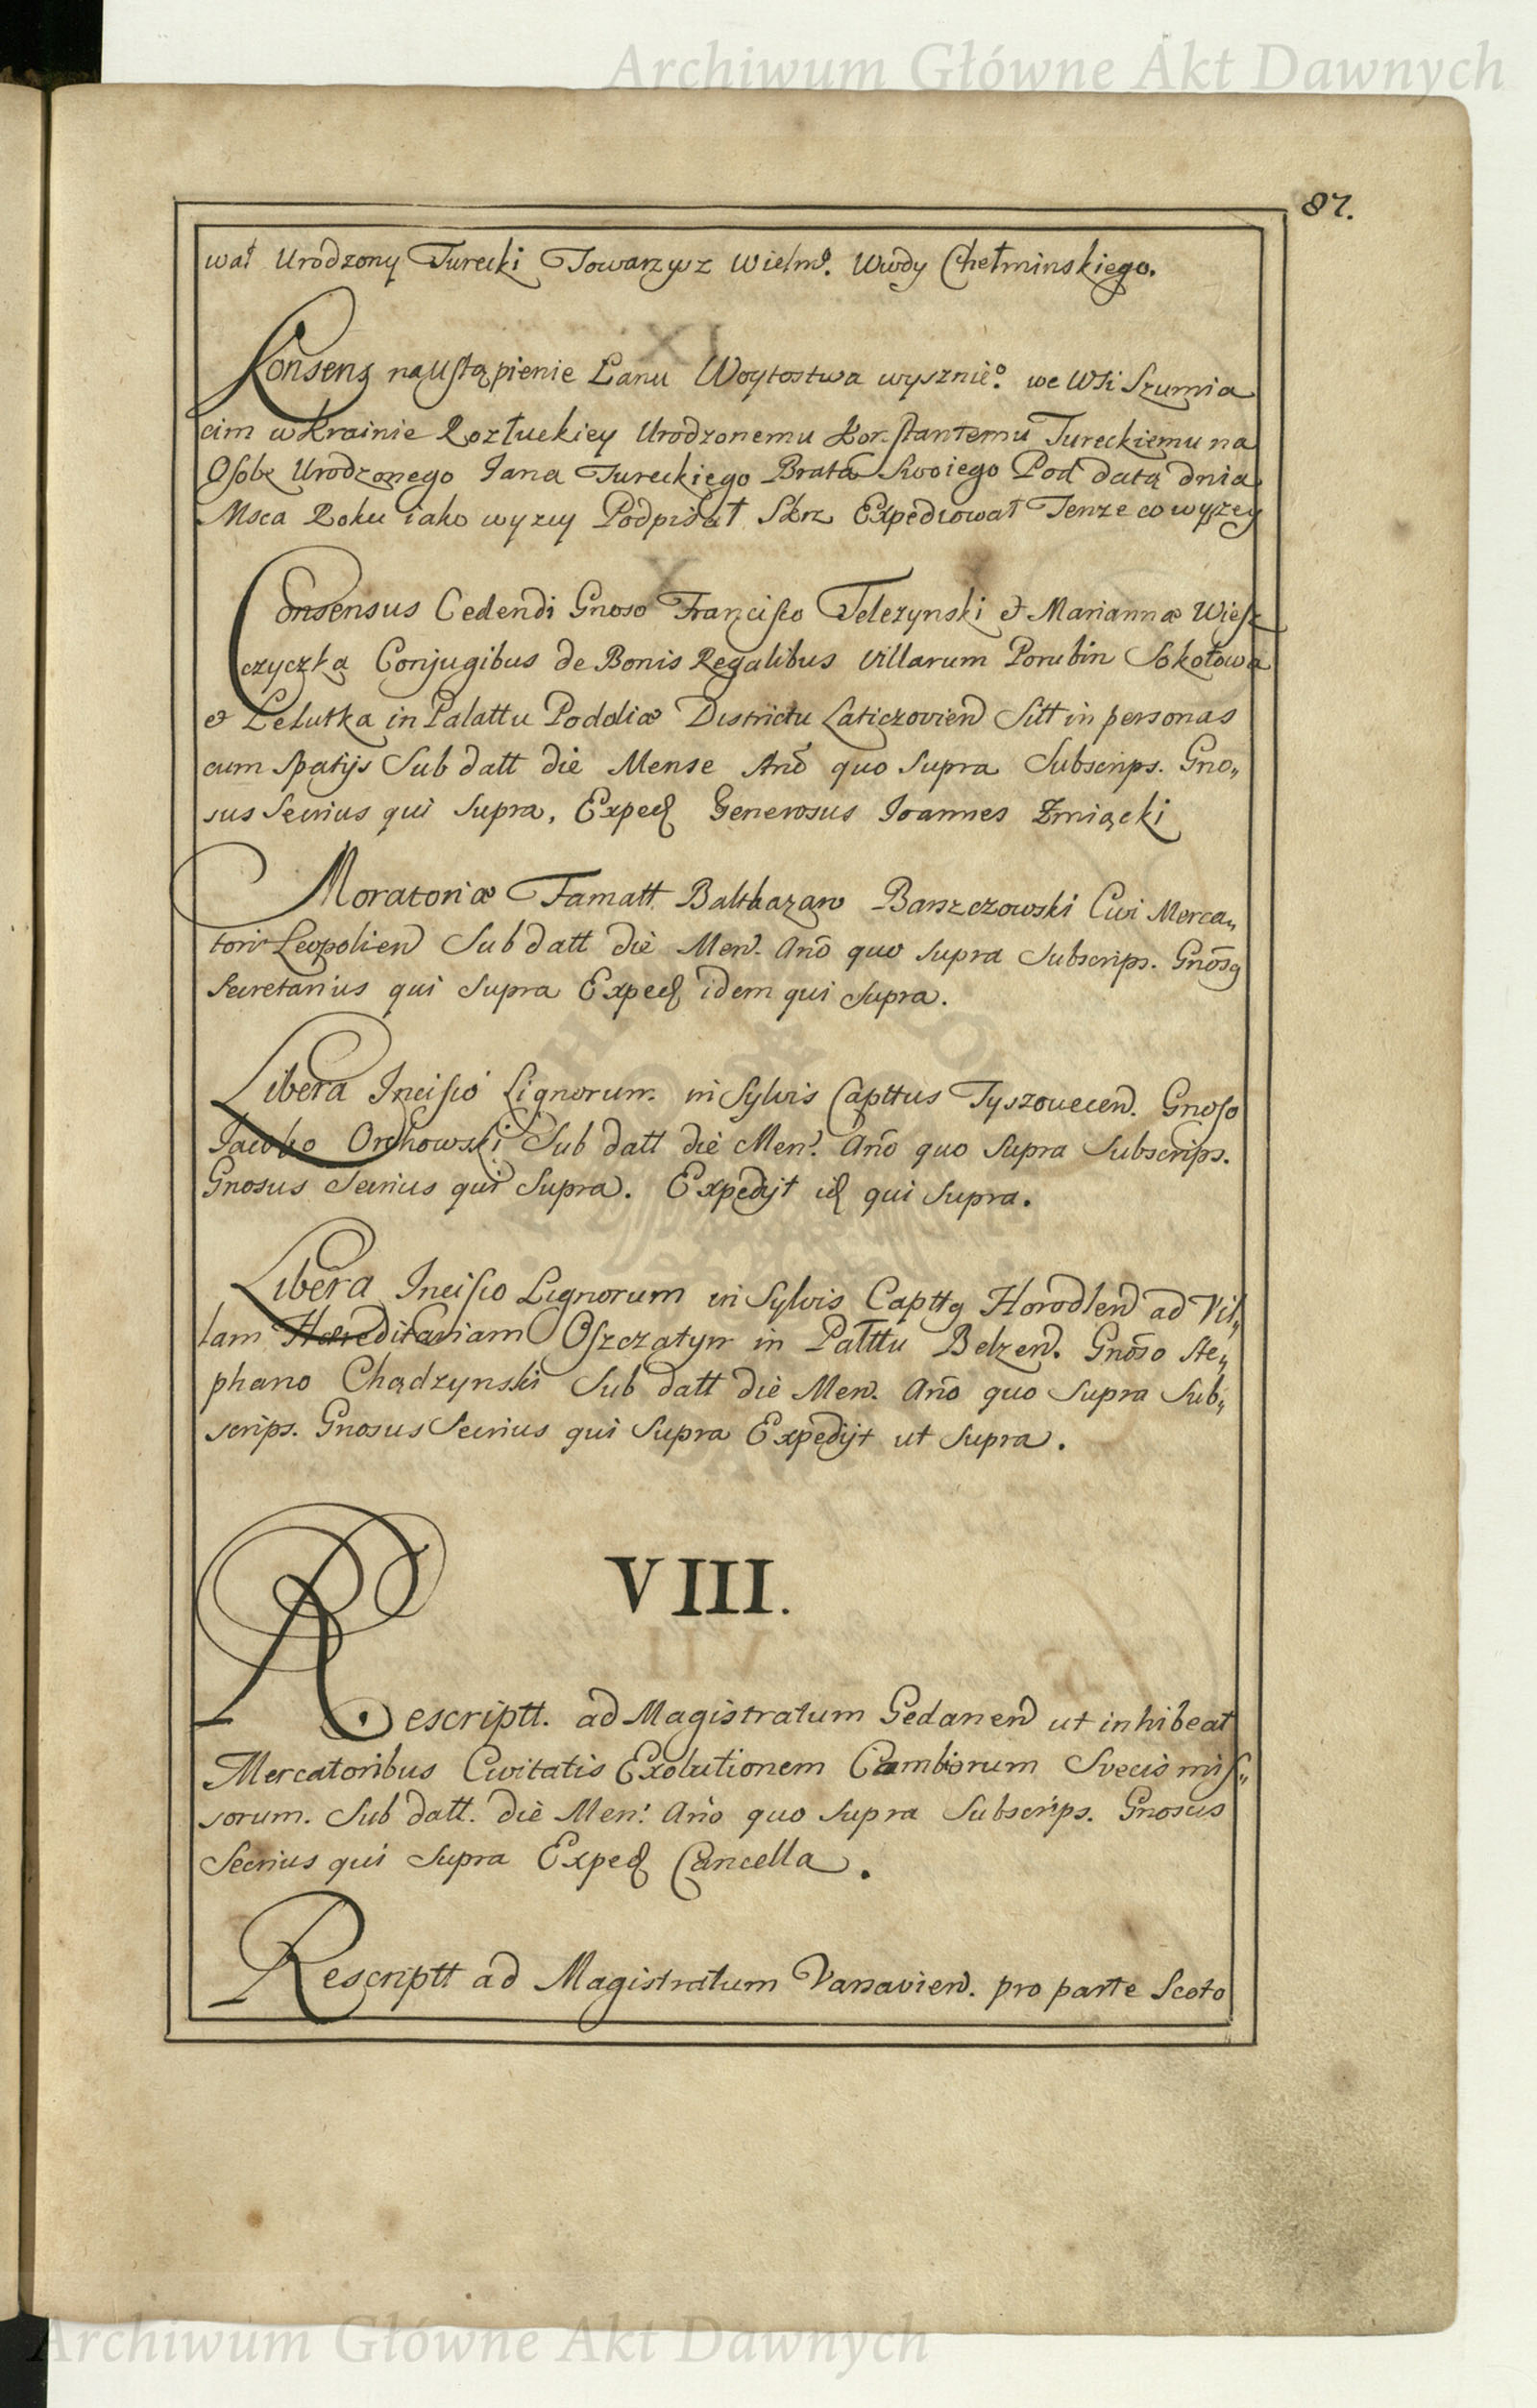 Archiwum Główne Akt Dawnych
87.
wał Urodzony Turecki Towarzysz Wielmo. Wwody Chełminskiego.
Konsens na Ustąpienie Łanu Woytostwa wysznieo. we Wsi Szumia
cim w Krainie Rozłuckiey Urodzonemu Konstantemu Tureckiemu na
Osobę Urodzonego Jana Tureckiego Brata Swoiego Pod datą dnia
Msca Roku iako wyzey Podpisał Skrz Expediował Tenze co wyzey
Consensus Cedendi Gnoso Francisco Telezynski et Mariannæ Wiesz
czyczka Conjugibus de Bonis Regalibus Villarum Porubin Sokołowa
et Lelutka in Palattu Podoliæ Districtu Laticzovien Sitt in personas
cum Spatijs Sub datt die Mense Ano quo Supra Subscrips. Gno„
sus Secrius qui Supra, Exped Generosus Joannes Zmiącki
Moratoriæ Famatt Balthazaro Barszczowski Civi Merca„
tori Leopolien Sub datt die Men. Ano quo Supra Subscrips. Gnosq
Secretarius qui Supra Exped idem qui Supra.
Libera Incisio Lignorum in Sylvis Capttus Tyszovecen. Gnoso
Jacobo Orchowski Sub datt die Men. Ano quo Supra Subscrips.
Gnosus Secrius qui Supra. Expedijt id qui Supra.
Libera Incisio Lignorum in Sylvis Capttq Horodlen ad Vil„
lam Hæreditariam Oszczatyn in Palttu Belzen. Gnoso Ste„
phano Chądzynski Sub datt die Men. Ano quo Supra Sub„
scrips. Gnosus Secrius qui Supra Expedijt ut Supra.
VIII.
Rescriptt. ad Magistratum Gedanen ut inhibeat
Mercatoribus Civitatis Exolutionem Cambiorum Svecis mis„
sorum. Sub datt. die Men: Ano quo Supra Subscrips. Gnosus
Secrius qui Supra Exped Cancella.
Rescriptt ad Magistratum Varsavien. pro parte Scoto
Archiwum Główne Akt Dawnych